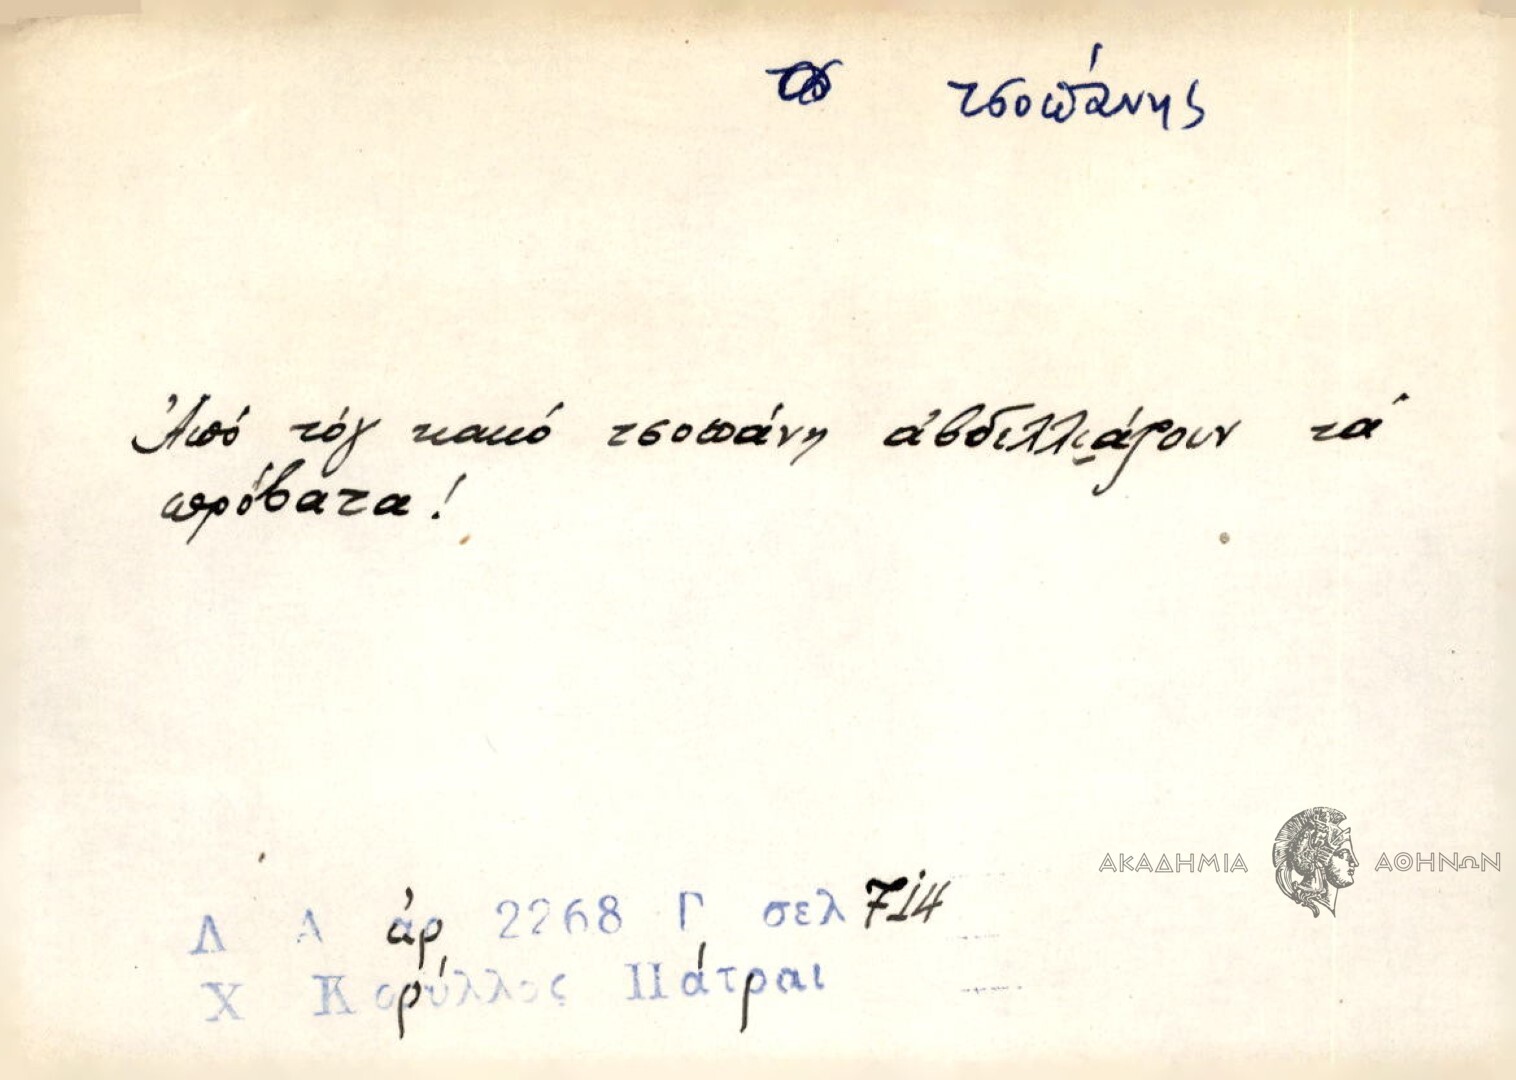 τσοπάνης
Ἀπό τόγ κακό τσοπάνη ἀβδελλιάζουν τά
πρόβατα!
ΑΚΑΔΗΜΙΑ ΑΘΗΝΩΝ
Λ Α ἀρ 2268 Γ σελ 714
Χ Κορύλλος Πάτραι